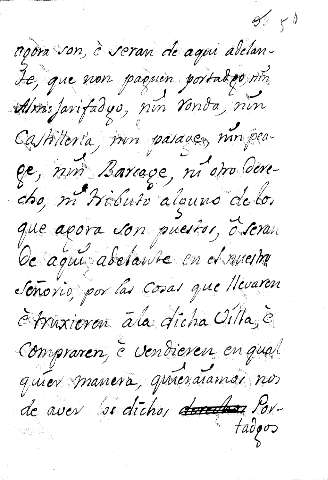 agora son, è seran de aqui adelan-
te, que non paguen portadgo, nin
Almojarifadgo, nin ronda, nin
Castilleria, nin pasage, nin pea-
ge, nin Barcage, ni otro dere-
cho, ni tributo alguno de los
que agora son puestos, ò seran
de aqui adelante en el nuestro
señorio por las cosas que llevaren
è truxieren à la dicha Villa, è
compraren, è vendieren en qual
quier manera, que
de aver los dichos derechos Por-
tadgos